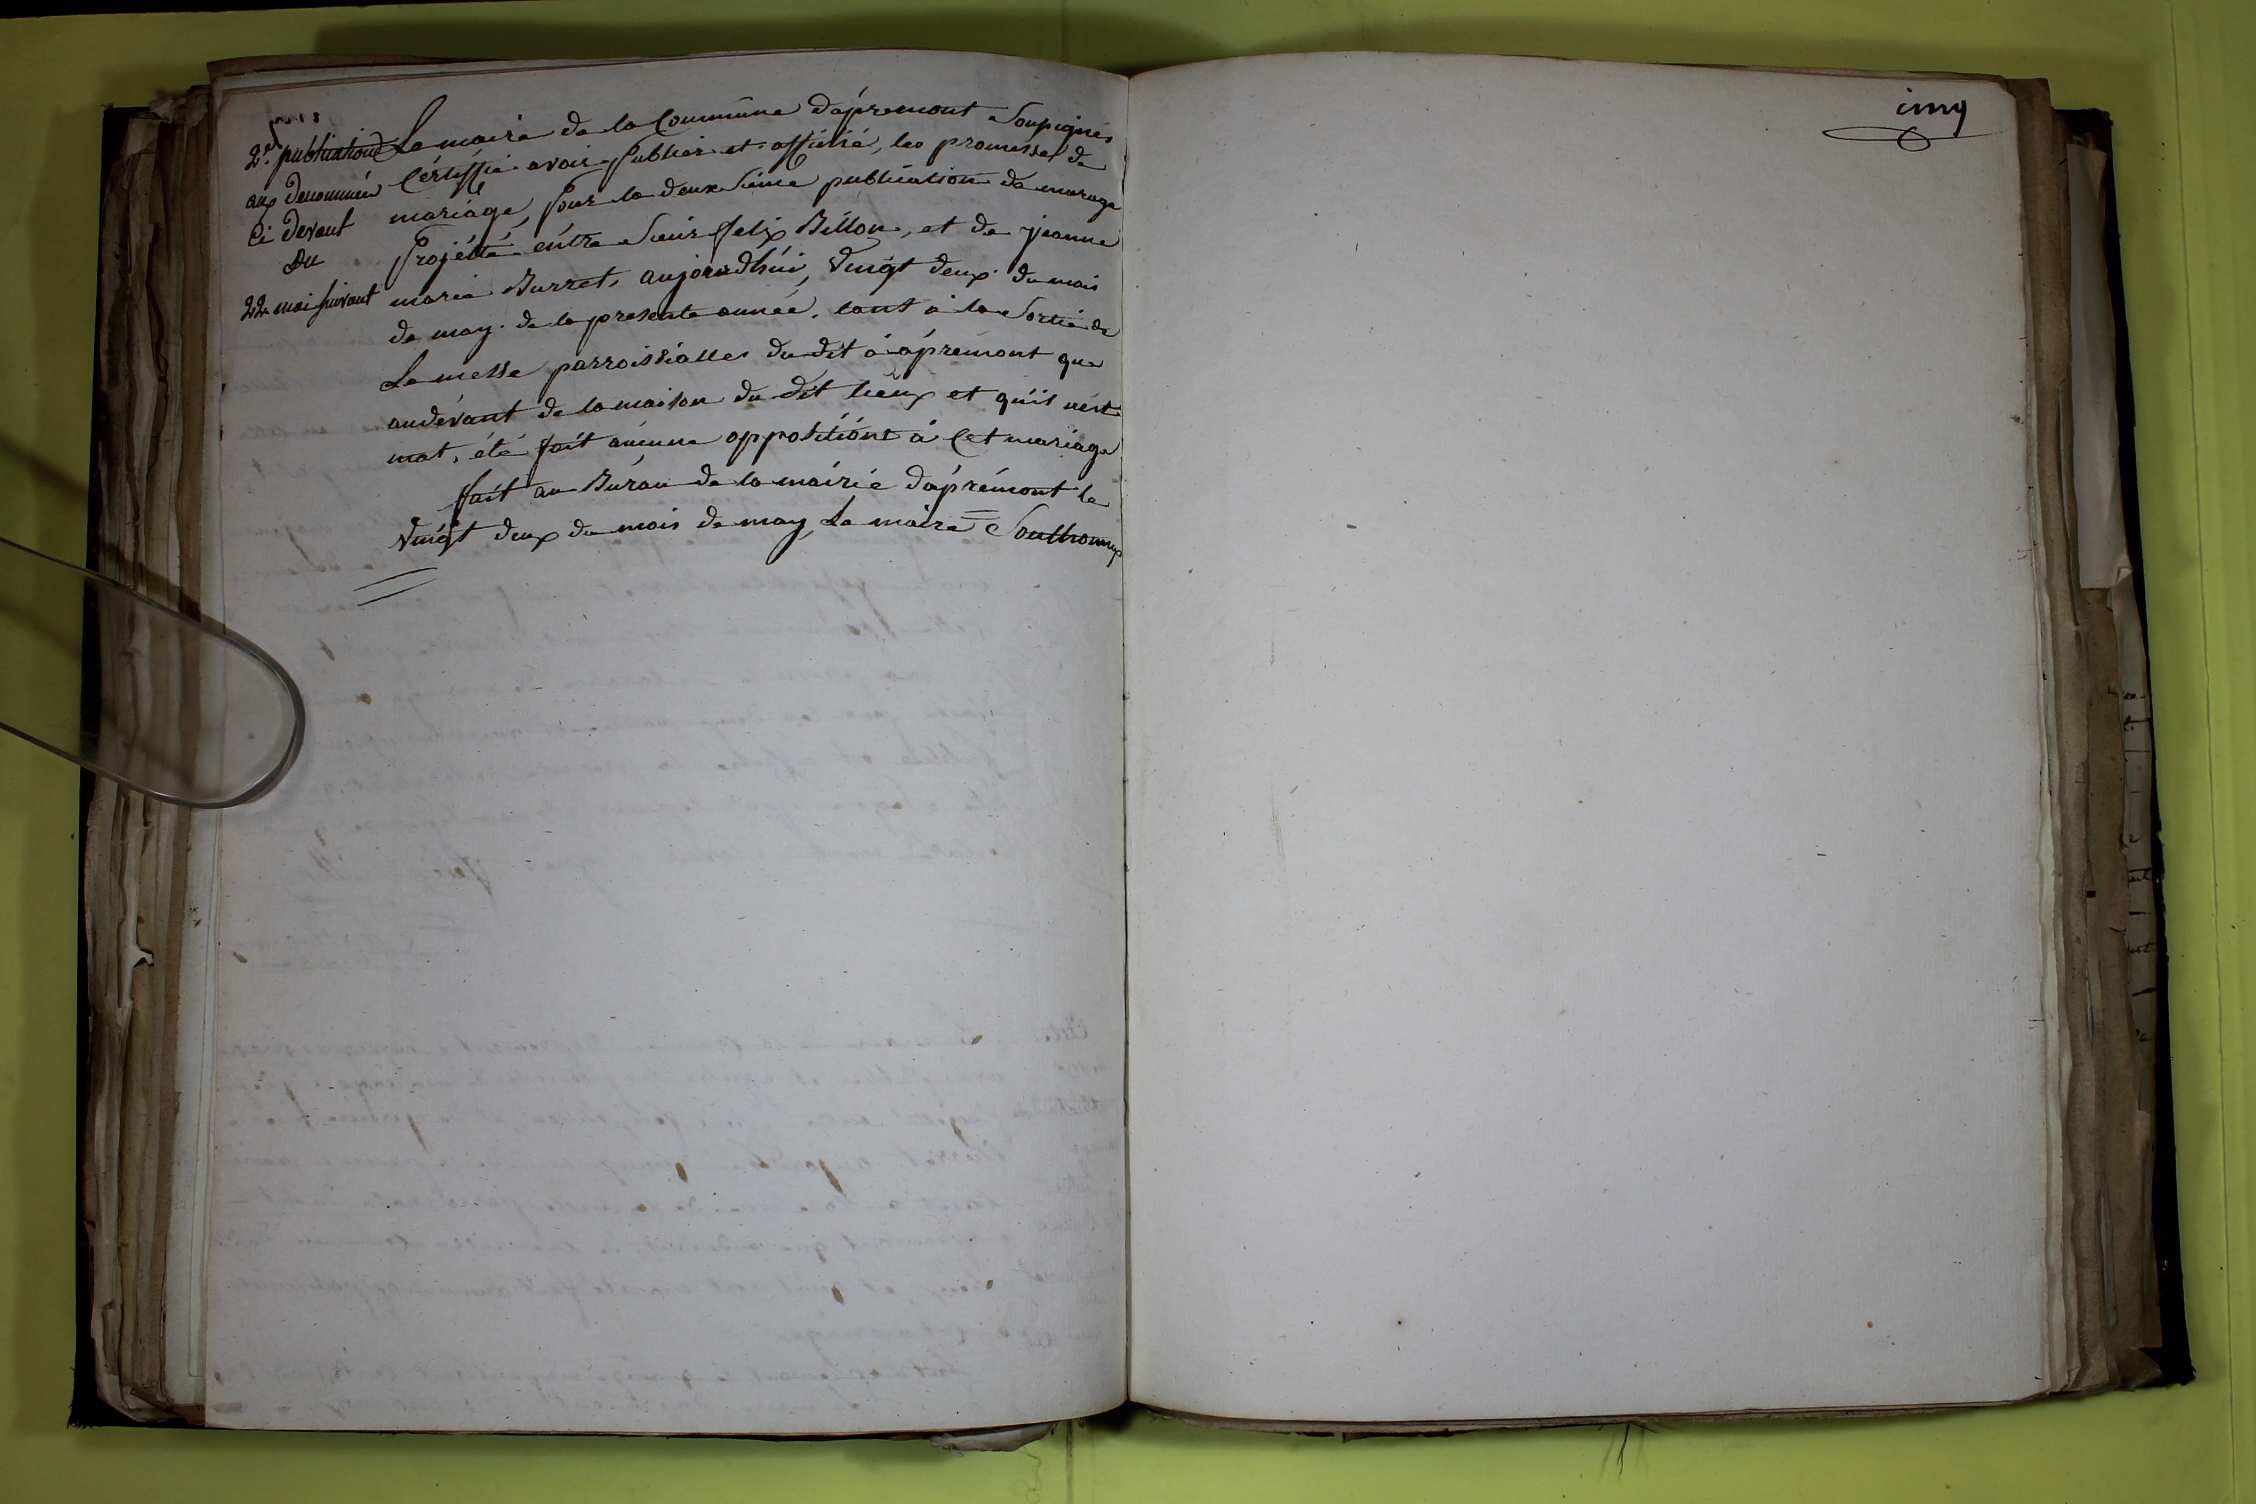 2e. publication
aux denommés
Ci devant
du
22 mai suivant
Le maire de la Commune d'apremont Soupignés
Cértiffie avoir publier et affiché, les promesses de
mariage, pour la deuxsiéme publication de mariage
Projétté éntre Sieur felix Billon, et de jeanne
marie Burret, aujourdhúi, vingt deux du mois
de may. de la presente année, tant á la Sortie de
La messe parroissialle du dit á ápremont que
audévant de la maison du dit lieux et qu'il nést
mat, été fait aúcune oppositiónt á Cet mariage
fait au Búrau de la mairie d'aprémont le
vingt deux du mois de may, Le maire = Southonnax
cinq